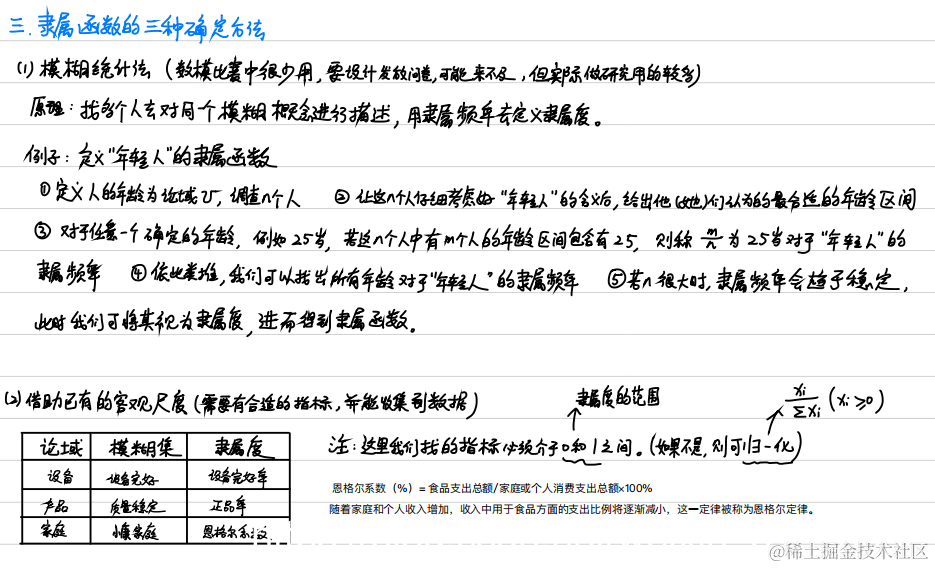 三. 隶属函数的三种确定方法
(1) 模糊统计法 (数模比赛中很少用, 要设计发放问卷, 可能来不及, 但实际做研究用的较多)
原理: 找多个人去对同一个模糊概念进行描述, 用隶属频率去定义隶属度。
例子: 定义"年轻人"的隶属函数
① 定义人的年龄为论域U, 调查n个人 ② 让这n个人仔细考虑好"年轻人"的含义后, 给出他(她)们认为的最合适的年龄区间
③ 对于任意一个确定的年龄, 例如25岁, 若这n个人中有m个人的年龄区间包含有25, 则称 m/n 为25岁对于"年轻人"的
隶属频率 ④ 依此类推, 我们可以找出所有年龄对于"年轻人"的隶属频率 ⑤ 若n很大时, 隶属频率会趋于稳定,
此时我们可将其视为隶属度, 进而得到隶属函数。
(2) 借助已有的客观尺度 (需要有合适的指标, 并能收集到数据)
隶属度的范围 xi/∑xi (xi≥0)
注: 这里我们找的指标必须介于0和1之间。(如果不是, 则可归一化)
论域 模糊集 隶属度
设备 设备完好 设备完好率
产品 质量稳定 正品率
家庭 小康家庭 恩格尔系数
恩格尔系数（%）= 食品支出总额/家庭或个人消费支出总额×100%
随着家庭和个人收入增加，收入中用于食品方面的支出比例将逐渐减小，这一定律被称为恩格尔定律。
@稀土掘金技术社区